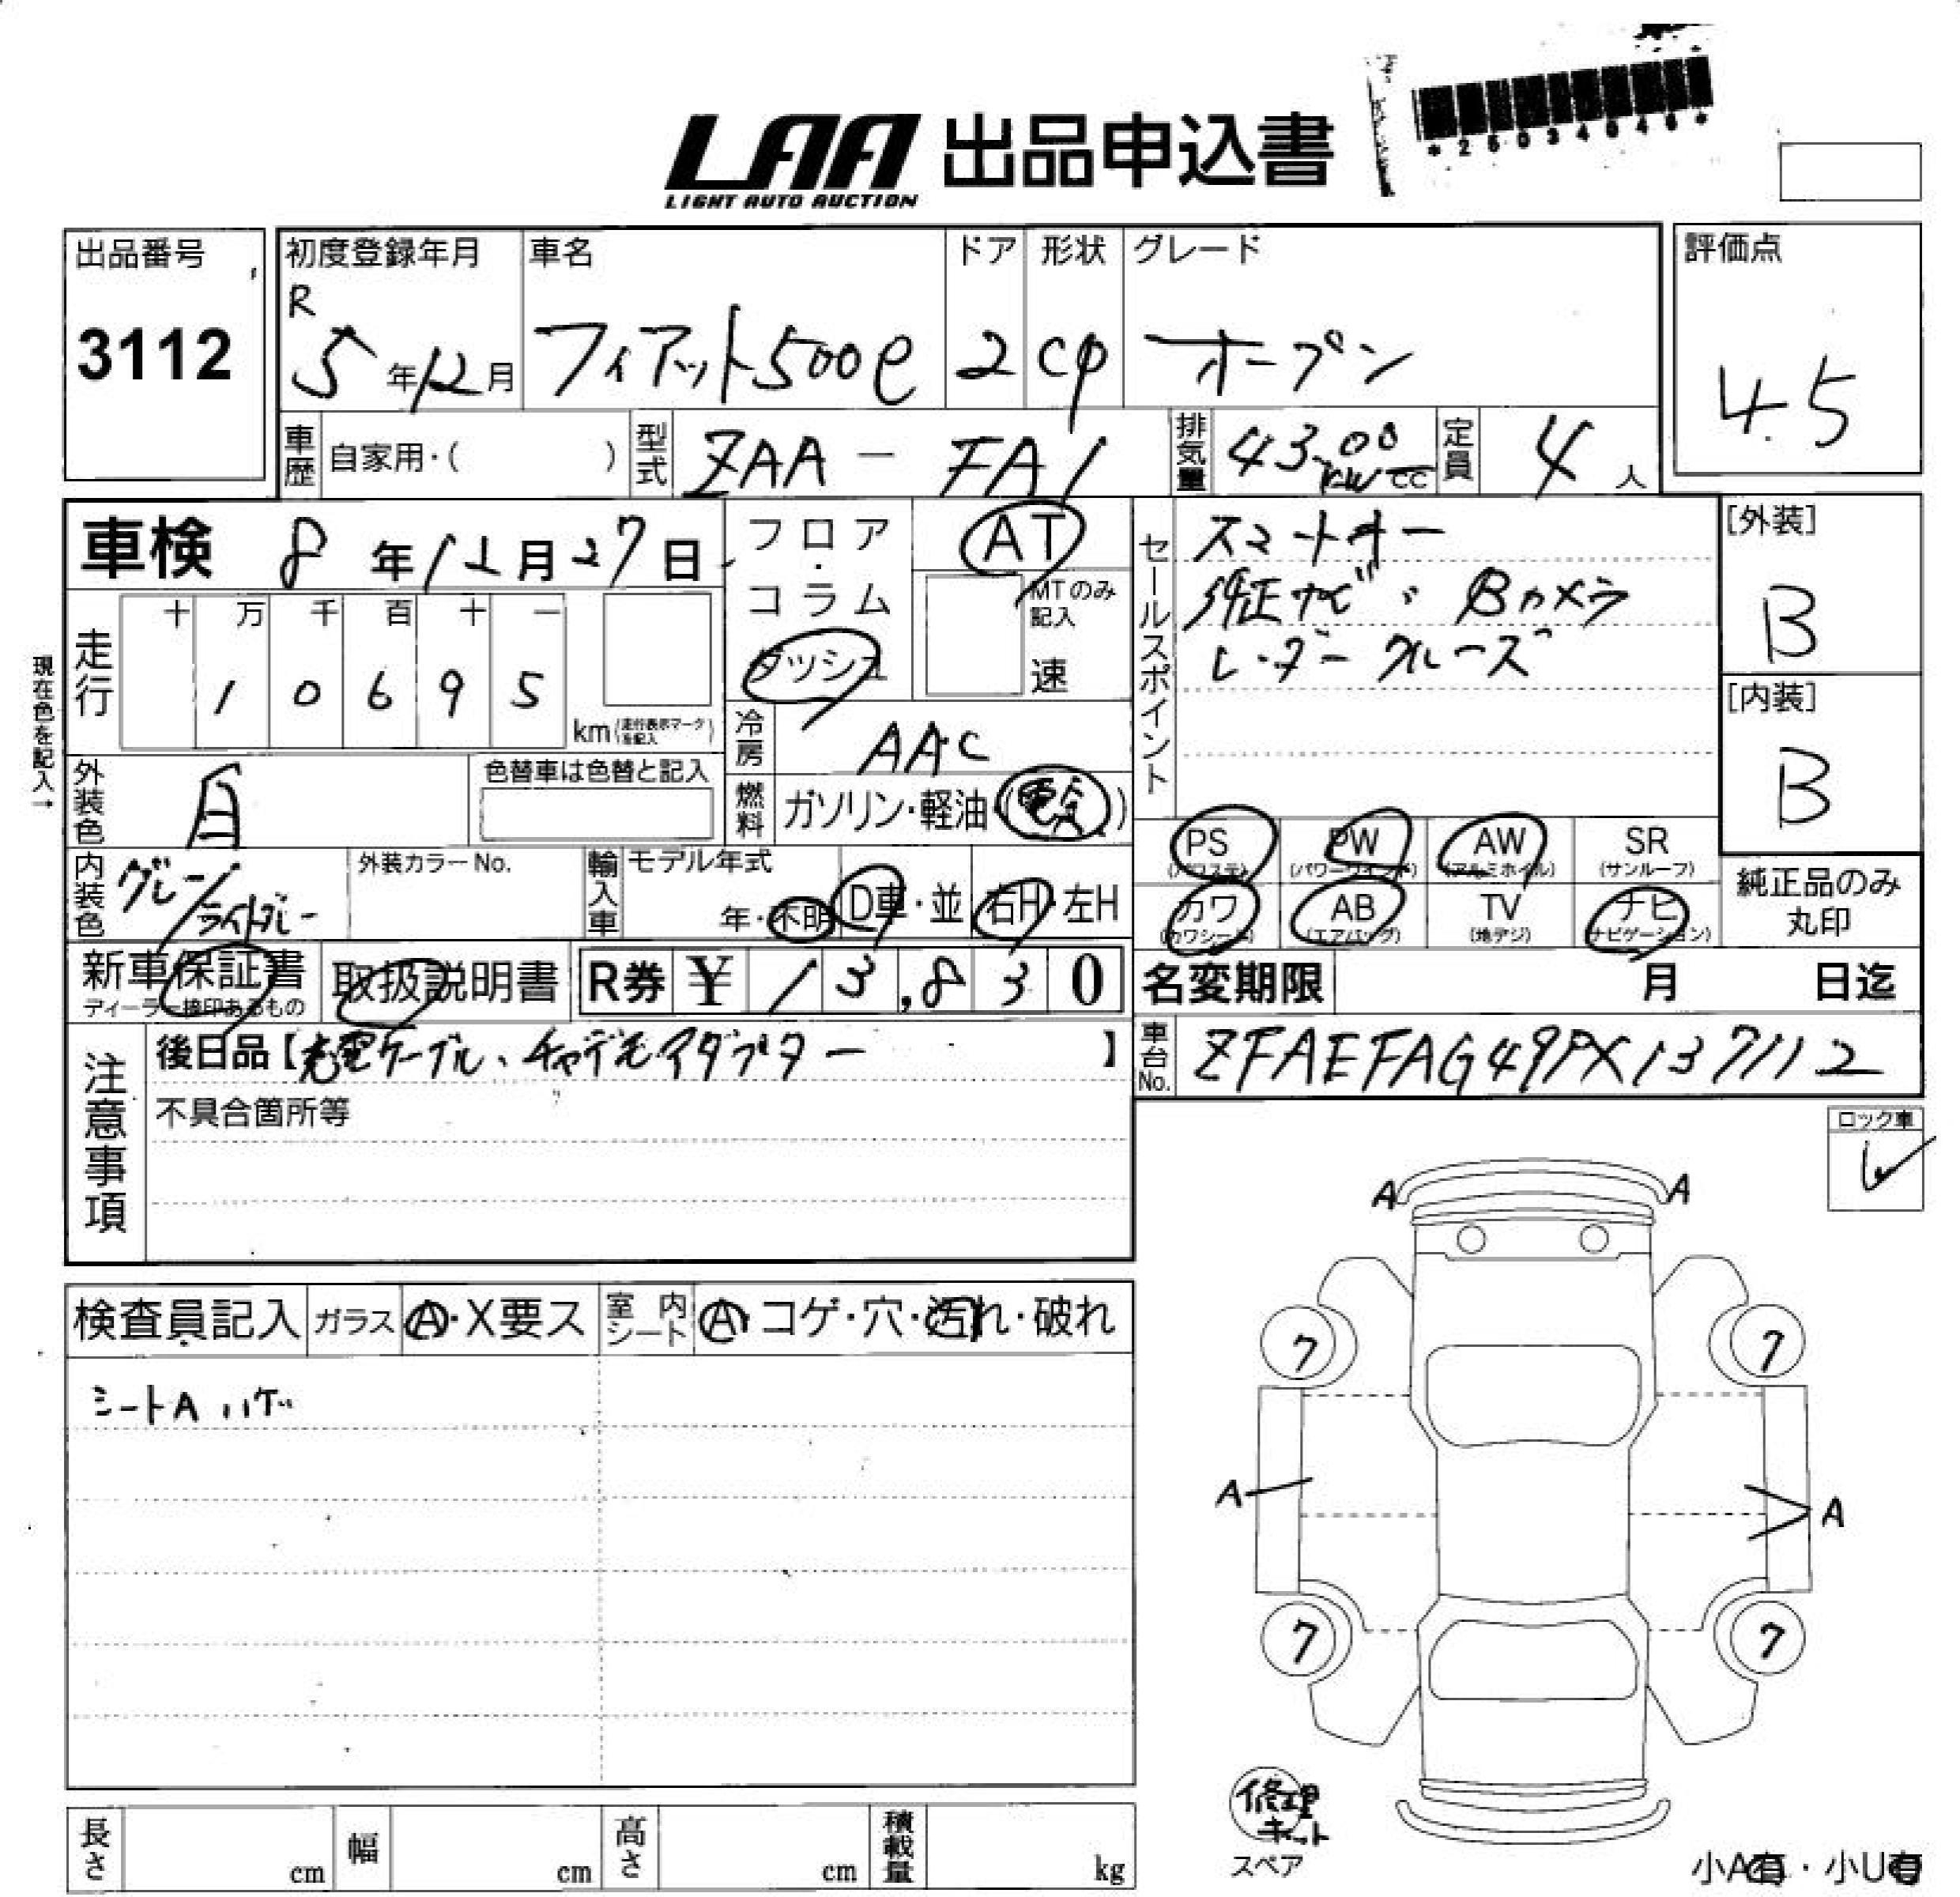 LAA 出品申込書
LIGHT AUTO AUCTION
*25034046*
出品番号
3112
初度登録年月
R
5年12月
車名
フィアット500e
ドア
2
形状
CP
グレード
オープン
評価点
4.5
車歴 自家用・( )
型式 ZAA - FA1
排気量 43.00 kw cc
定員 4人
車検 8年12月27日
フロア・コラム
ダッシュ
AT
MTのみ記入
速
現在色を記入→
走行
十 万 千 百 十 一
1 0 6 9 5
km (走行表示マークを記入)
冷房 AAC
外装色 白
色替車は色替と記入
燃料 ガソリン・軽油・(電気)
内装色 グレー/ライトグレー
外装カラーNo.
輸入車 モデル年式
年・不明
D車・並
右H・左H
セールスポイント
スマートキー
純正ナビ、Bカメラ
レーダークルーズ
[外装]
B
[内装]
B
PS (パワステ)
PW (パワーウインド)
AW (アルミホイル)
SR (サンルーフ)
カワ (カワシート)
AB (エアバッグ)
TV (地デジ)
ナビ (ナビゲーション)
純正品のみ
丸印
新車保証書
ディーラー捺印あるもの
取扱説明書
R券 ¥ 13,830
名変期限 月 日迄
注意事項
後日品【充電ケーブル、チャデモアダプター】
不具合箇所等
車台No. ZFAEFAG49PX137112
ロック車
検査員記入
ガラス A・X要ス
室内シート A・コゲ・穴・汚れ・破れ
シートA ハゲ
A A
7 7
A A
7 7
修理
キット
スペア
小A有・小U有
長さ cm
幅 cm
高さ cm
積載量 kg